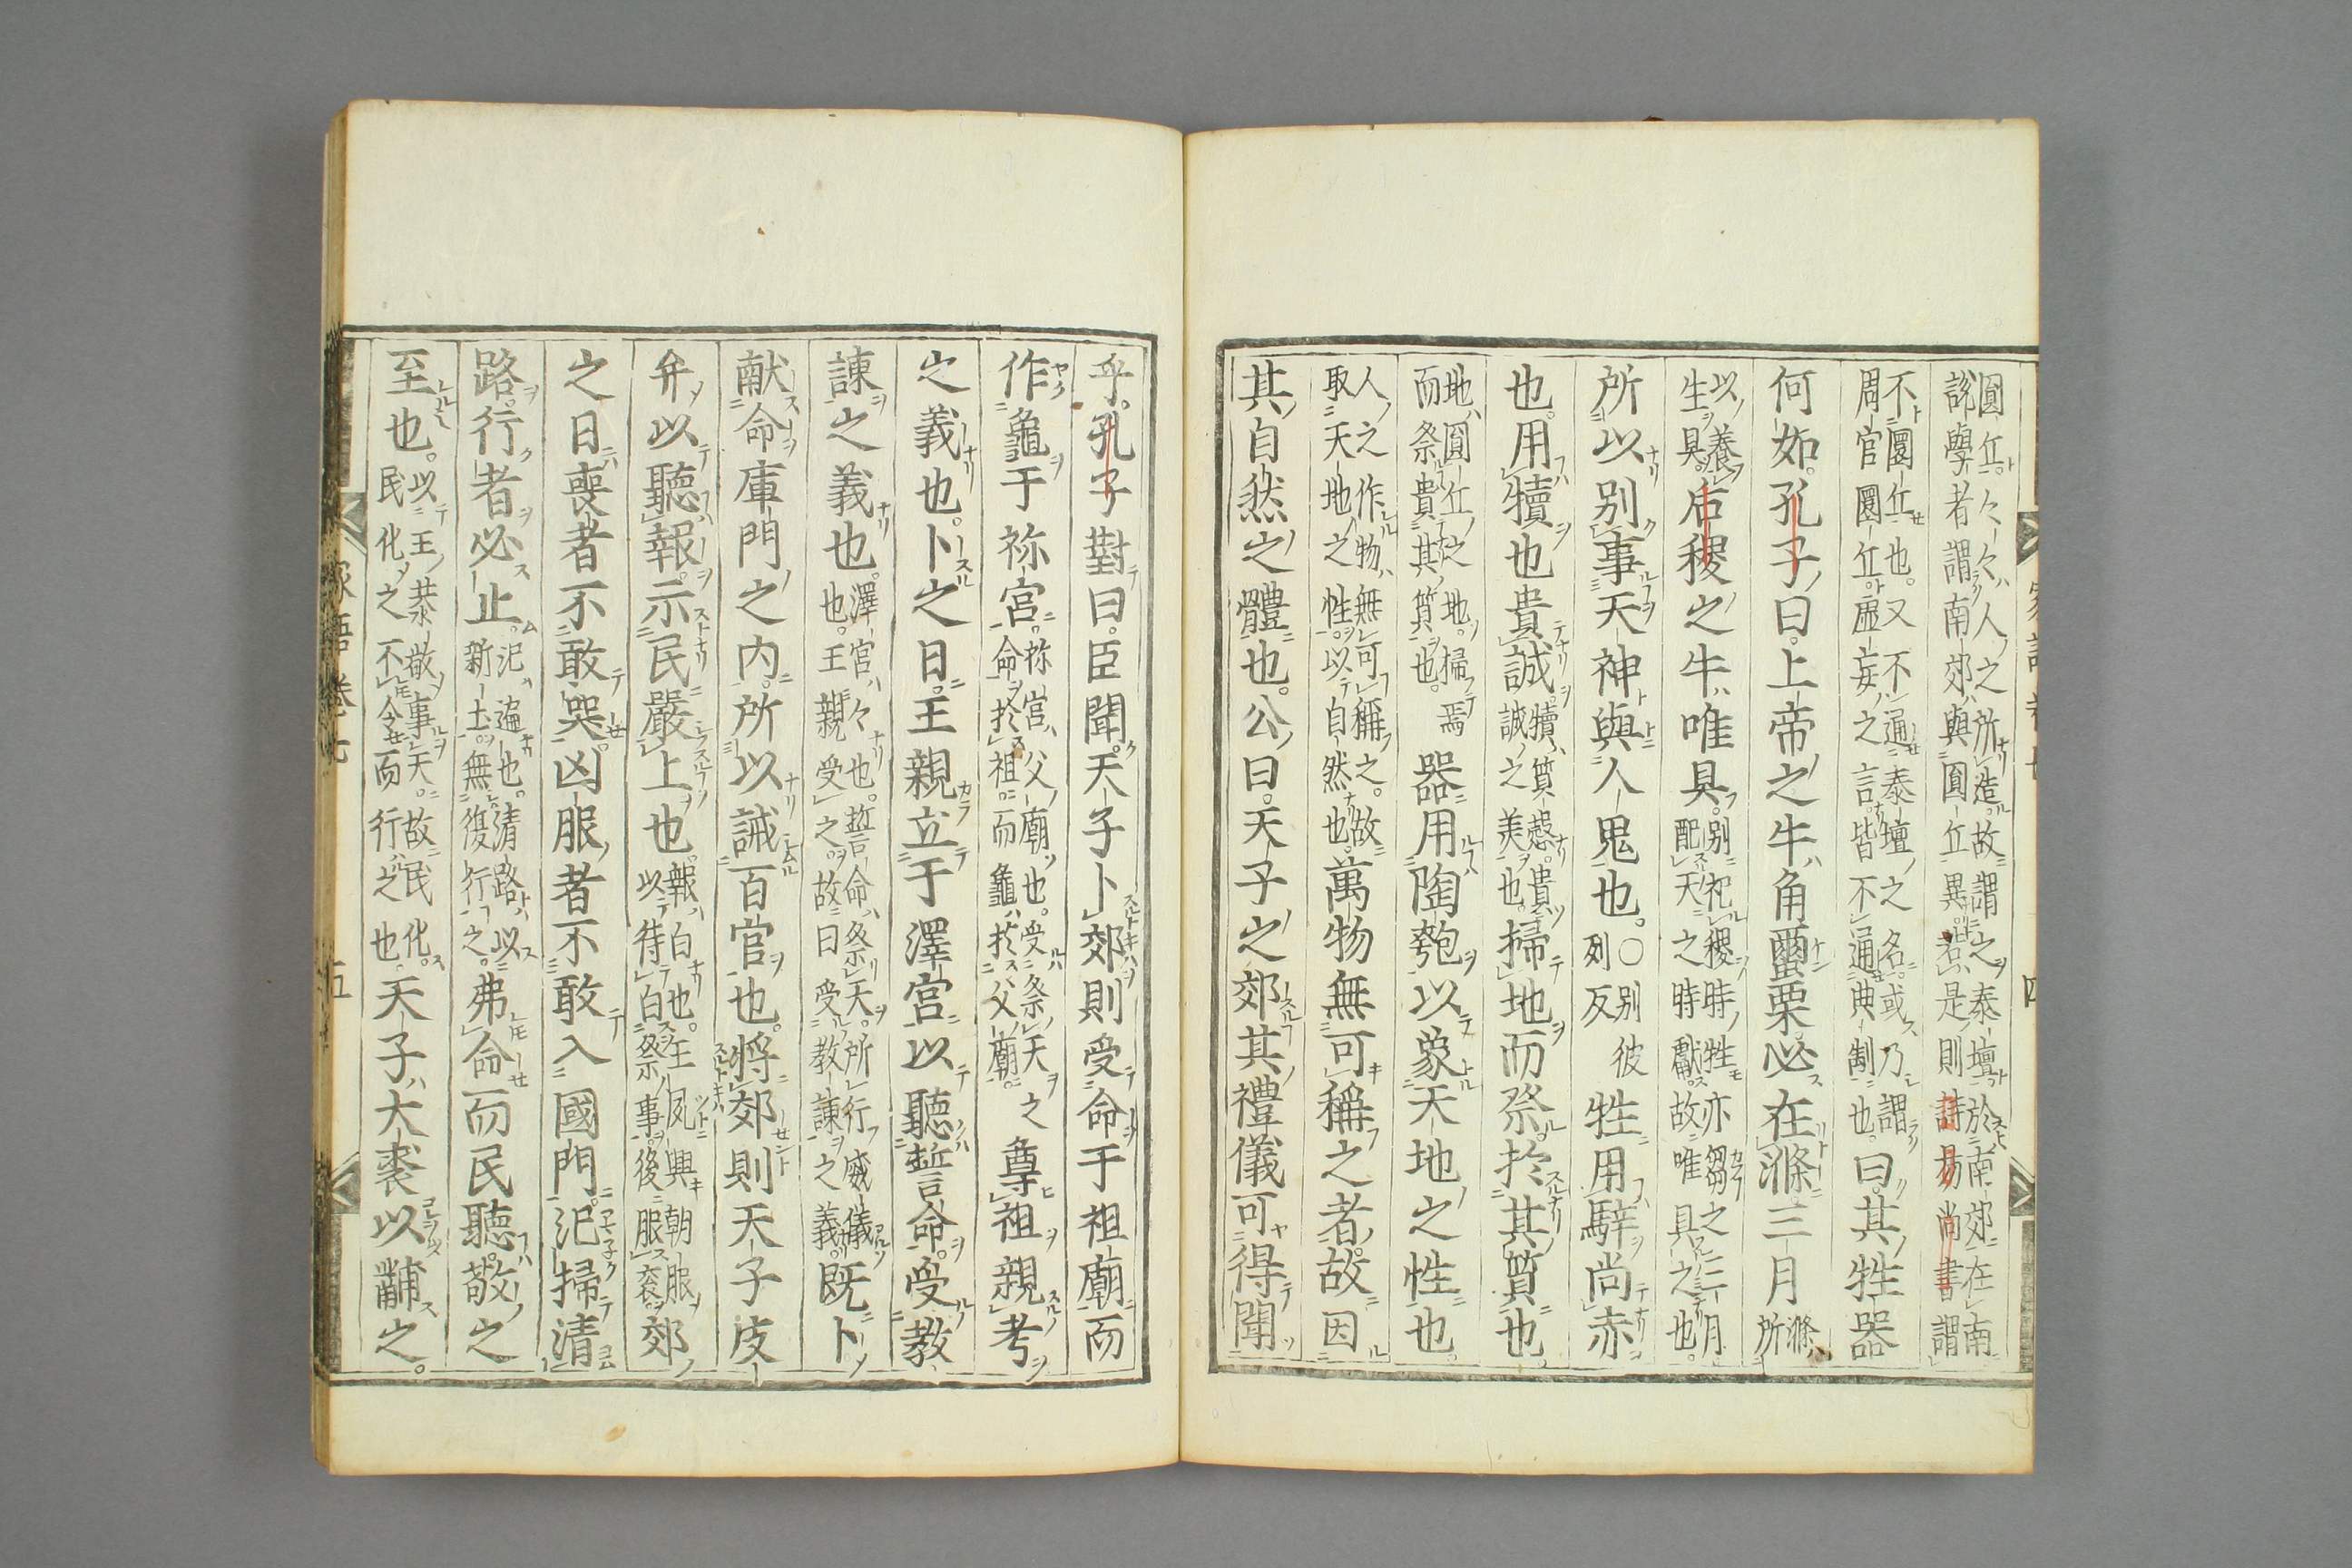 圓丘々々人之所造故謂之泰壇於南郊在南
說學者謂南郊與圓丘異若是則詩易尚書謂
不圜丘也又不通泰壇之名或乃謂
周官圜丘虛妄之言皆不通典制也曰其牲器
何如孔子曰上帝之牛角蠒栗必在滌三月滌所
以養生具后稷之牛唯具別祀稷時牲亦芻之三月配天之時獻故唯具之也
所以別事天神與人鬼也○別彼列反牲用騂尚赤
也用犢也貴誠犢質愨貴誠之美也掃地而祭於其質也
地圓丘之地掃焉而祭貴其質也器用陶匏以象天地之性也
人之作物無可稱之故取天地之性以自然也萬物無可稱之者故因
其自然之體也公曰天子之郊其禮儀可得聞
乎孔子對曰臣聞天子卜郊則受命于祖廟而
作龜于祢宮祢宮父廟也受祭天之命於祖而龜於父廟尊祖親考
之義也卜之日王親立于澤宮以聽誓命受教
諫之義也澤宮々也誓命祭天所行威儀也王親受之故曰受教諫之義既卜
献命庫門之内所以誡百官也将郊則天子皮
弁以聽報示民嚴上也報白也王夙興朝服以待白祭事後服衮郊
之日喪者不敢哭凶服者不敢入國門汜掃清
路行者必止汜遍也清路以新土無復行之弗命而民聽敬之
至也以王恭敬事天故民化之不令而行之也天子大裘以黼之
家語卷七 四
家語卷七 五